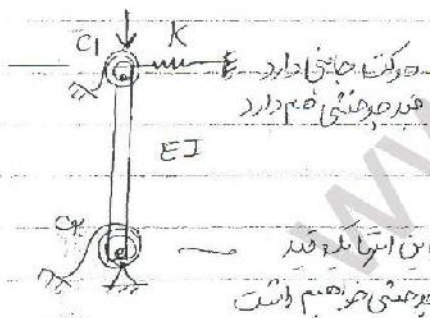 C1
K
حرکت جانبی دارد
قید چرخشی هم دارد
EI
C2
این انتها یک قید
چرخشی خواهیم داشت